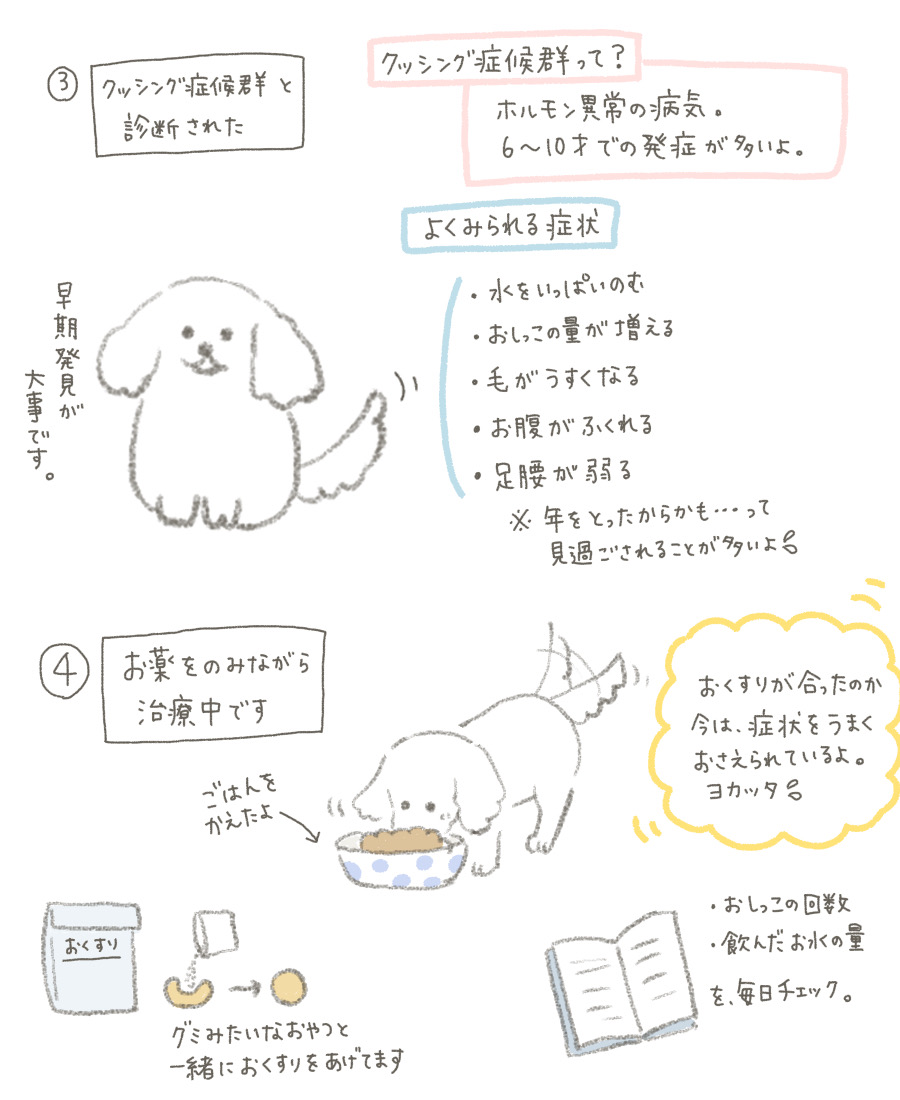 ③
クッシング症候群と
診断された
クッシング症候群って?
ホルモン異常の病気。
6〜10才での発症が多いよ。
よくみられる症状
・水をいっぱいのむ
・おしっこの量が増える
・毛がうすくなる
・お腹がふくれる
・足腰が弱る
※年をとったからかも…って
見過ごされることが多いよ
早期発見が
大事です。
④
お薬をのみながら
治療中です
ごはんを
かえたよ
おくすりが合ったのか
今は、症状をうまく
おさえられているよ。
ヨカッタ
おくすり
グミみたいなおやつと
一緒におくすりをあげてます
・おしっこの回数
・飲んだお水の量
を、毎日チェック。